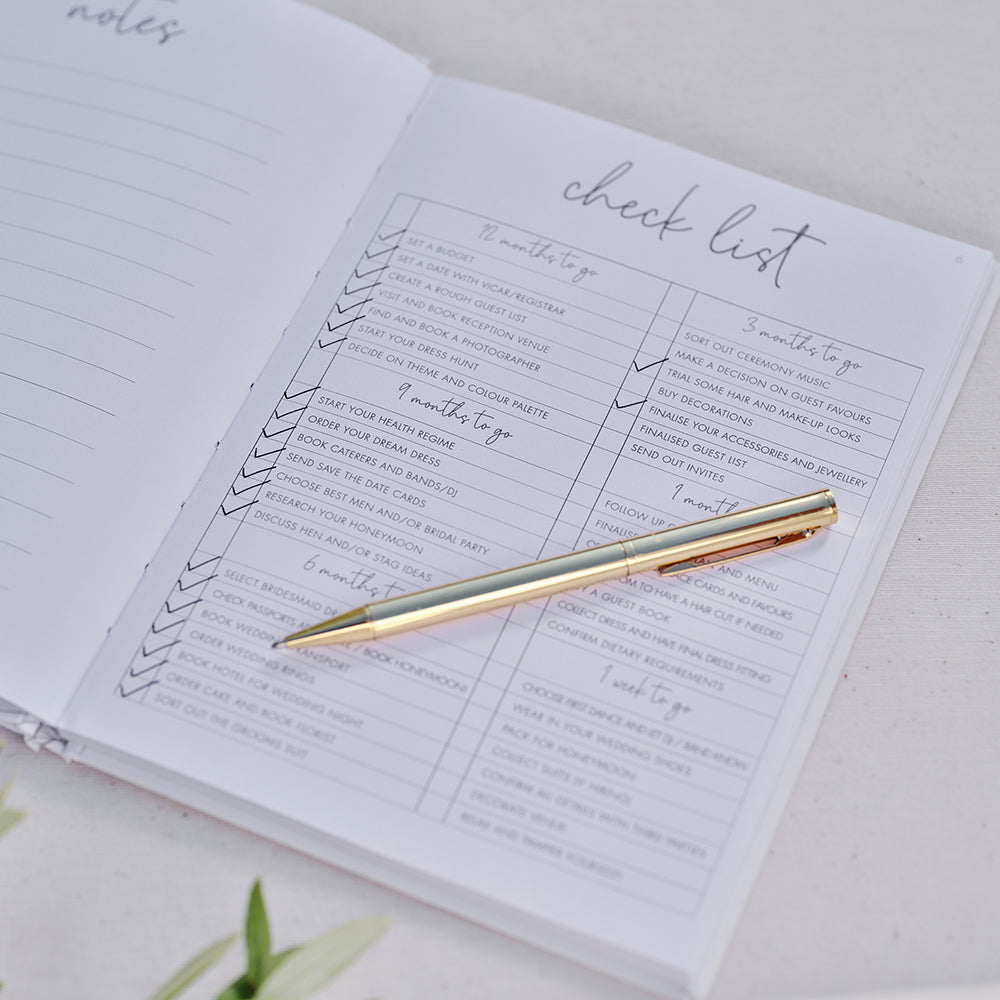 notes
check list
6
12 months to go
SET A BUDGET
SET A DATE WITH VICAR/REGISTRAR
CREATE A ROUGH GUEST LIST
VISIT AND BOOK RECEPTION VENUE
FIND AND BOOK A PHOTOGRAPHER
START YOUR DRESS HUNT
DECIDE ON THEME AND COLOUR PALETTE
9 months to go
START YOUR HEALTH REGIME
ORDER YOUR DREAM DRESS
BOOK CATERERS AND BANDS/DJ
SEND SAVE THE DATE CARDS
CHOOSE BEST MEN AND/OR BRIDAL PARTY
RESEARCH YOUR HONEYMOON
DISCUSS HEN AND/OR STAG IDEAS
6 months t
SELECT BRIDESMAID DR
CHECK PASSPORTS / BOOK HONEYMOON
BOOK WEDDING TRANSPORT
ORDER WEDDING RINGS
BOOK HOTEL FOR WEDDING NIGHT
ORDER CAKE AND BOOK FLORIST
SORT OUT THE GROOMS SUIT
3 months to go
SORT OUT CEREMONY MUSIC
MAKE A DECISION ON GUEST FAVOURS
TRIAL SOME HAIR AND MAKE-UP LOOKS
BUY DECORATIONS
FINALISE YOUR ACCESSORIES AND JEWELLERY
FINALISED GUEST LIST
SEND OUT INVITES
1 month
FOLLOW UP
FINALISE
AND MENU
ACE CARDS AND FAVOURS
OM TO HAVE A HAIR CUT IF NEEDED
A GUEST BOOK
COLLECT DRESS AND HAVE FINAL DRESS FITTING
CONFIRM DIETARY REQUIREMENTS
1 week to go
CHOOSE FIRST DANCE AND LET DJ / BAND KNOW
WEAR IN YOUR WEDDING SHOES
PACK FOR HONEYMOON
COLLECT SUITS IF HIRING
CONFIRM ALL DETAILS WITH THIRD PARTIES
DECORATE VENUE
RELAX AND PAMPER YOURSELF!